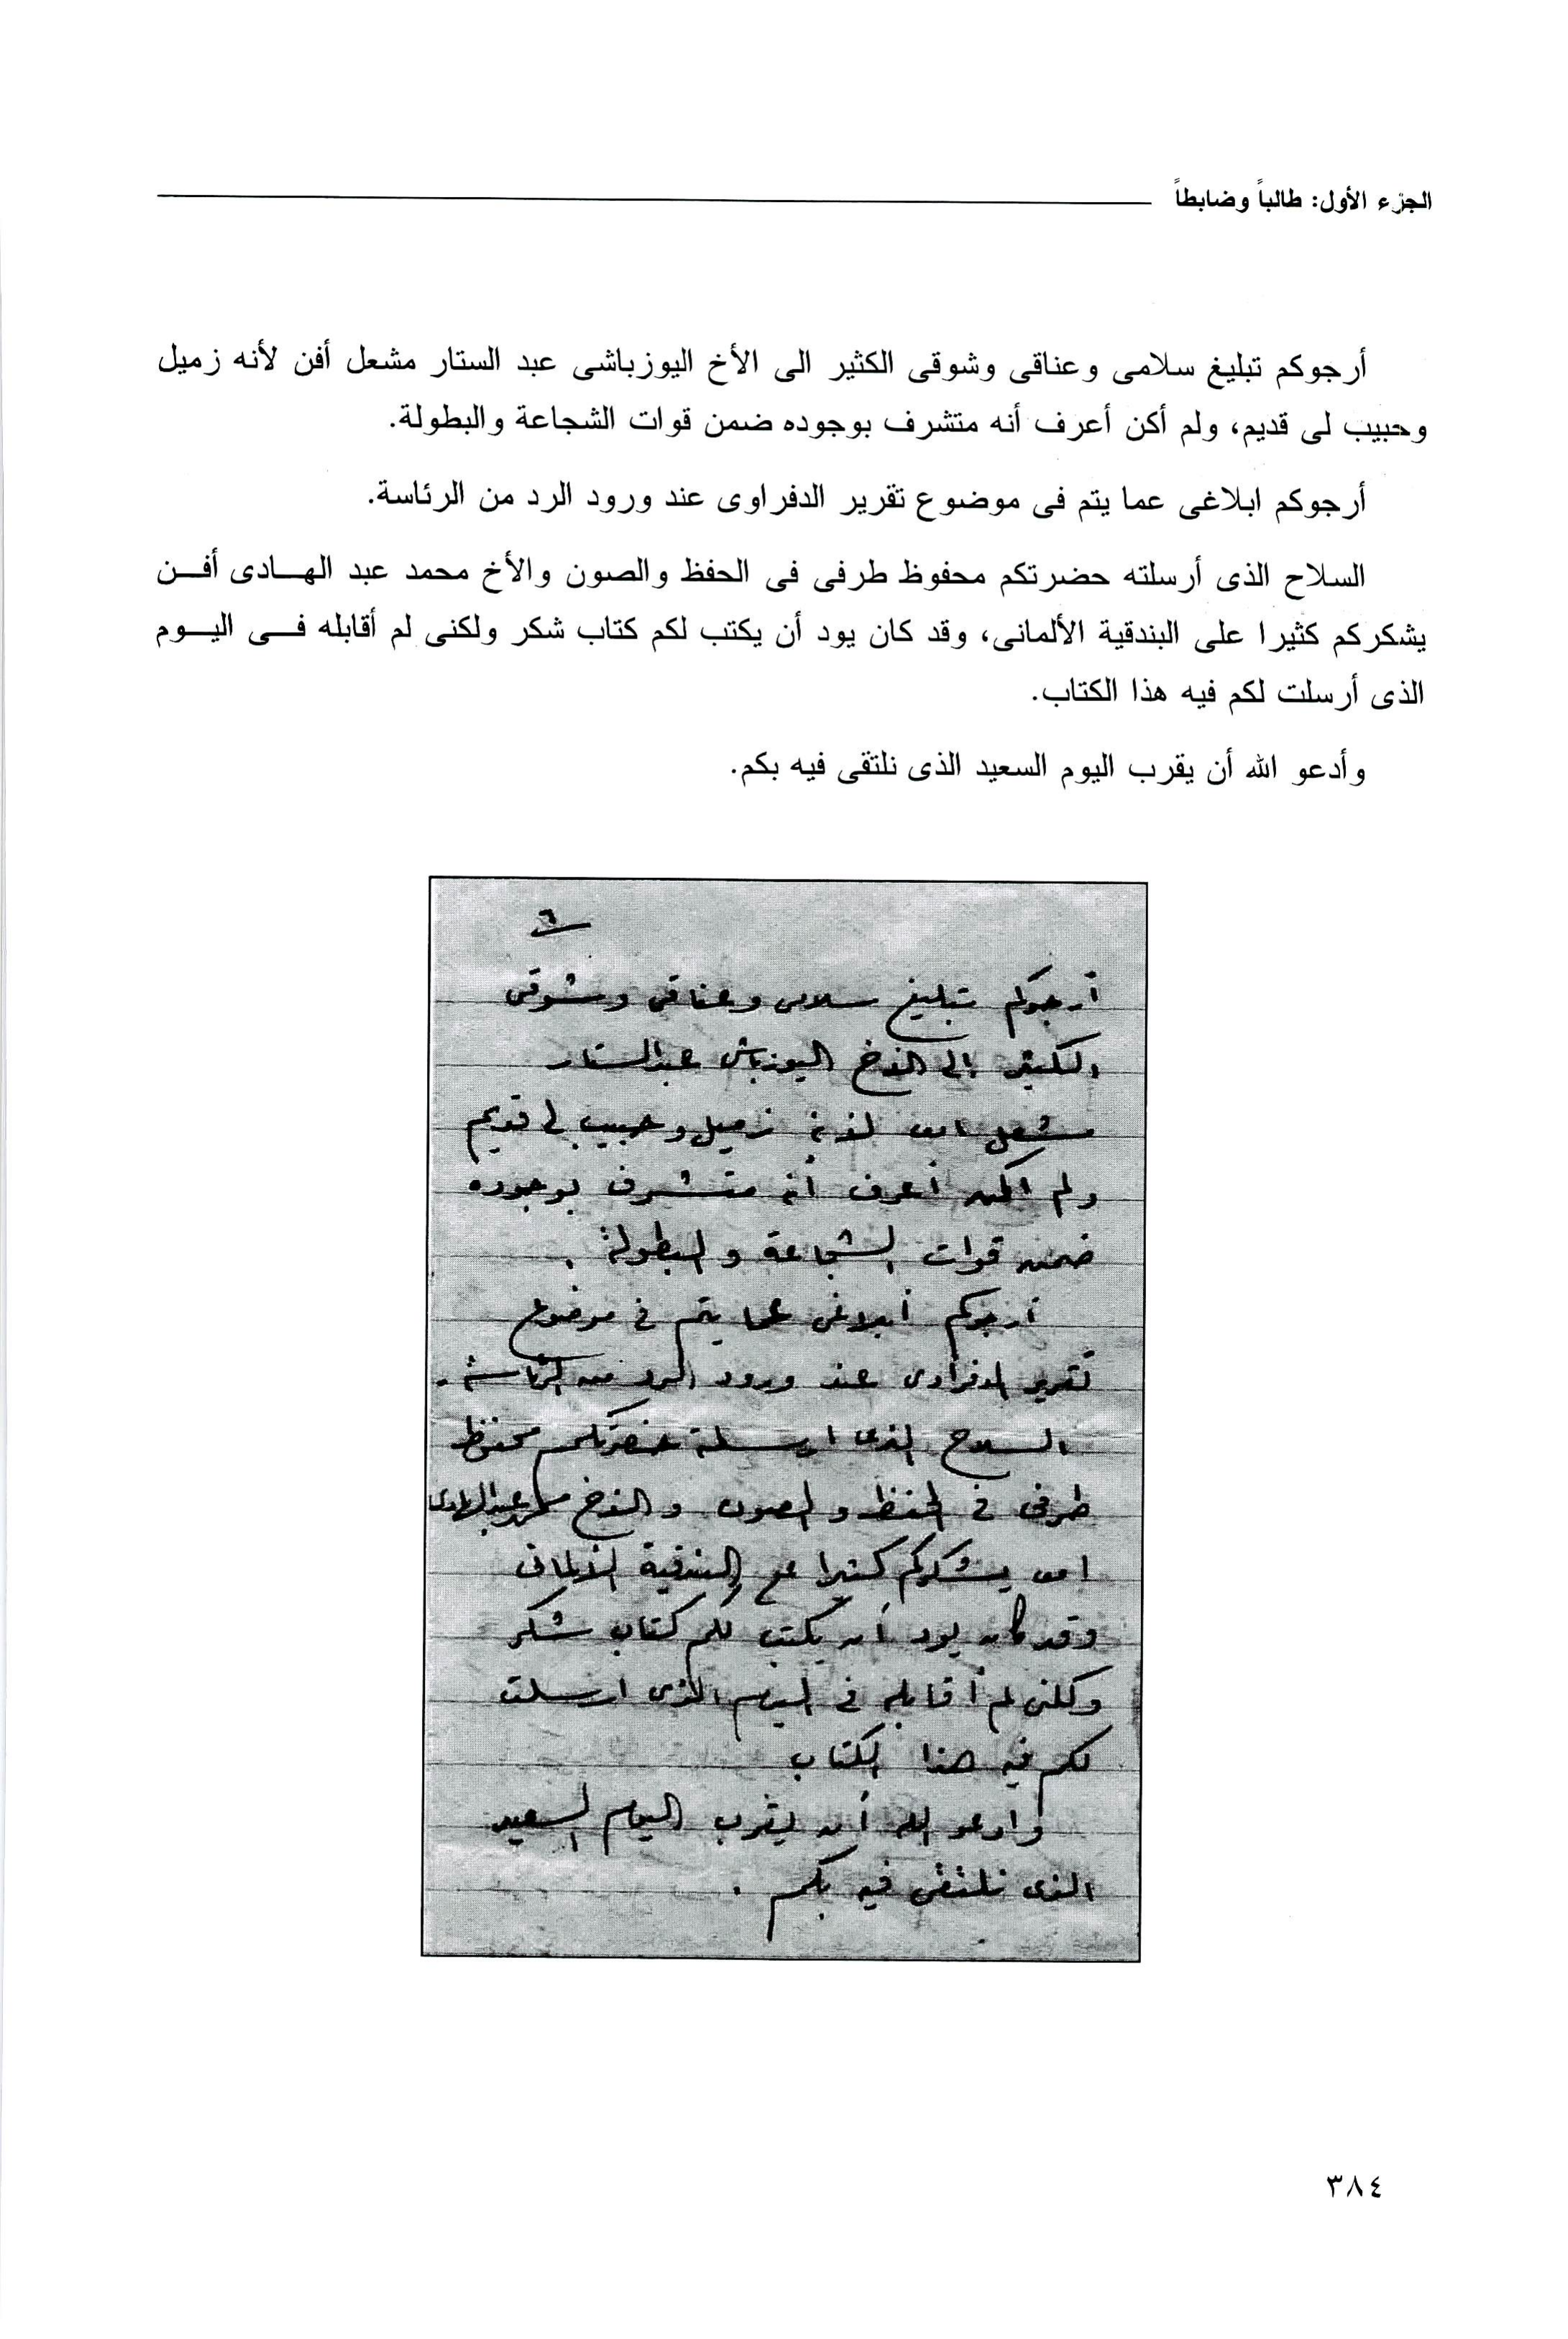 الجزء الأول: طالباً وضابطاً
أرجوكم تبليغ سلامى وعناقى وشوقى الكثير الى الأخ اليوزباشى عبد الستار مشعل أفن لأنه زميل
وحبيب لى قديم، ولم أكن أعرف أنه متشرف بوجوده ضمن قوات الشجاعة والبطولة.
أرجوكم ابلاغى عما يتم فى موضوع تقرير الدفراوى عند ورود الرد من الرئاسة.
السلاح الذى أرسلته حضرتكم محفوظ طرفى فى الحفظ والصون والأخ محمد عبد الهادى أفن
يشكركم كثيرا على البندقية الألمانى، وقد كان يود أن يكتب لكم كتاب شكر ولكنى لم أقابله فى اليوم
الذى أرسلت لكم فيه هذا الكتاب.
وأدعو الله أن يقرب اليوم السعيد الذى نلتقى فيه بكم.
٦
أرجوكم تبليغ سلامى وعناقى وشوقى
الكثير إلى الأخ اليوزباشى عبد الستار
مشعل افن لأنه زميل وحبيب لى قديم
ولم اكن أعرف أنه متشرف بوجوده
ضمن قوات الشجاعة والبطولة .
أرجوكم أبلاغى عما يتم فى موضوع
تقرير الدفراوى عند ورود الرد من الرئاسة .
السلاح الذى ارسلته حضرتكم محفوظ
طرفى فى الحفظ والصون والأخ محمد عبد الهادى
افن يشكركم كثيرا على البندقية الألمانى
وقد كان يود أن يكتب لكم كتاب شكر
ولكنى لم أقابله فى اليوم الذى ارسلت
لكم فيه هذا الكتاب
وادعو الله أن يقرب اليوم السعيد
الذى نلتقى فيه بكم .
٣٨٤